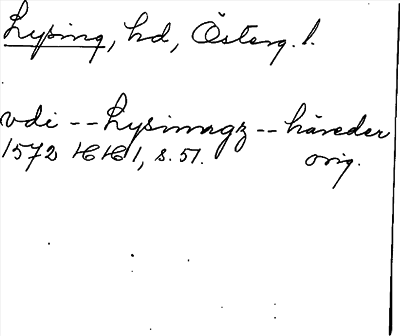 Lysing, hd, Österg. l.
vdi -- Lysimagz -- häreder
1572 HH 1, s. 51. orig.